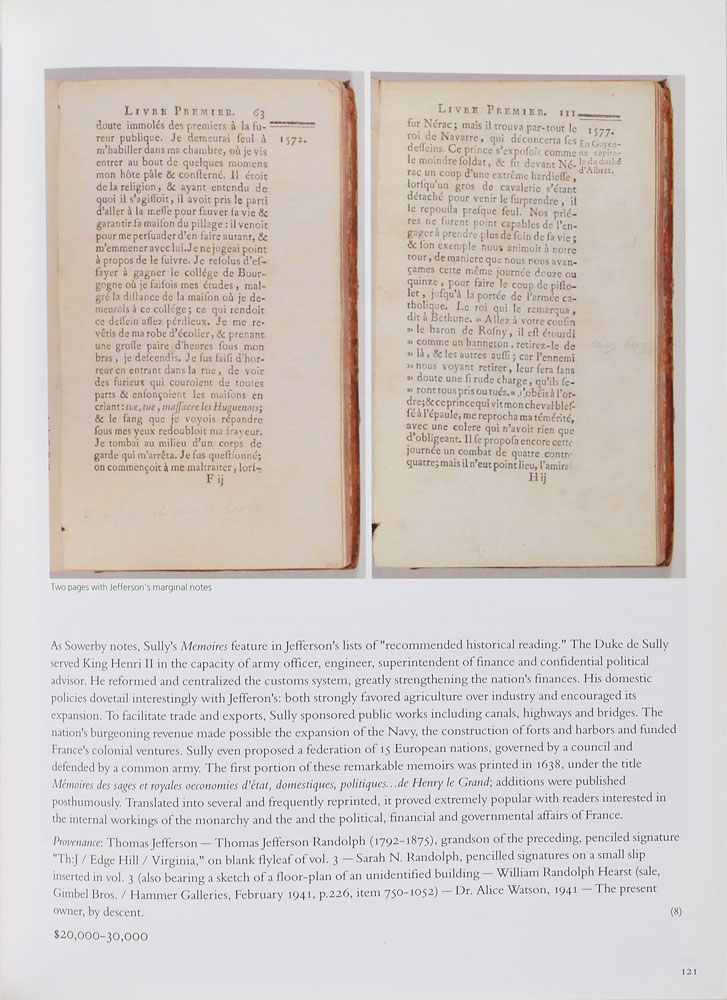 LIVRE PREMIER. 63
doute immolés des premiers à la fu-
reur publique. Je demeurai seul à
1572.
m'habiller dans ma chambre, où je vis
entrer au bout de quelques momens
mon hôte pâle & consterné. Il étoit
de la religion, & ayant entendu de
quoi il s'agissoit, il avoit pris le parti
d'aller à la messe pour sauver sa vie &
garantir sa maison du pillage : il venoit
pour me persuader d'en faire autant, &
m'emmener avec lui. Je ne jugeai point
à propos de le suivre. Je résolus d'es-
sayer à gagner le collége de Bour-
gogne où je faisois mes études, mal-
gré la distance de la maison où je de-
meurois à ce collége ; ce qui rendoit
ce dessein assez périlleux. Je me re-
vêtis de ma robe d'écolier, & prenant
une grosse paire d'heures sous mon
bras, je descendis. Je fus saisi d'hor-
reur en entrant dans la rue, de voir
des furieux qui couroient de toutes
parts & enfonçoient les maisons en
criant : tue, tue, massacre les Huguenots ;
& le sang que je voyois répandre
sous mes yeux redoubloit ma frayeur.
Je tombai au milieu d'un corps de
garde qui m'arrêta. Je fus questionné ;
on commençoit à me maltraiter, lors-
F ij
LIVRE PREMIER. 111
sur Nérac ; mais il trouva par-tout le
roi de Navarre, qui déconcerta ses
desseins. Ce prince s'exposoit comme
le moindre soldat, & fit devant Né-
rac un coup d'une extrême hardiesse,
1577.
En Guyen-
ne capita-
le du duché
d'Albret.
lorsqu'un gros de cavalerie s'étant
détaché pour venir le surprendre, il
le repoussa presque seul. Nos prié-
res ne furent point capables de l'en-
gager à prendre plus de soin de sa vie ;
& son exemple nous animoit à notre
tour, de maniere que nous nous avan-
çames cette même journée douze ou
quinze, pour faire le coup de pisto-
let, jusqu'à la portée de l'armée ca-
tholique. Le roi qui le remarqua,
dit à Béthune. » Allez à votre cousin
» le baron de Rosny, il est étourdi
» comme un hanneton, retirez-le de
» là, & les autres aussi ; car l'ennemi
» nous voyant retirer, leur fera sans
» doute une si rude charge, qu'ils se-
» ront tous pris ou tués. « J'obéis à l'or-
dre ; & ce prince qui vit mon cheval bles-
sé à l'épaule, me reprocha ma témérité,
avec une colere qui n'avoit rien que
d'obligeant. Il se proposa encore cette
journée un combat de quatre contre
quatre ; mais il n'eut point lieu, l'amir
H ij
Two pages with Jefferson's marginal notes
As Sowerby notes, Sully's Memoires feature in Jefferson's lists of "recommended historical reading." The Duke de Sully
served King Henri II in the capacity of army officer, engineer, superintendent of finance and confidential political
advisor. He reformed and centralized the customs system, greatly strengthening the nation's finances. His domestic
policies dovetail interestingly with Jefferon's: both strongly favored agriculture over industry and encouraged its
expansion. To facilitate trade and exports, Sully sponsored public works including canals, highways and bridges. The
nation's burgeoning revenue made possible the expansion of the Navy, the construction of forts and harbors and funded
France's colonial ventures. Sully even proposed a federation of 15 European nations, governed by a council and
defended by a common army. The first portion of these remarkable memoirs was printed in 1638, under the title
Mémoires des sages et royales oeconomies d'état, domestiques, politiques...de Henry le Grand; additions were published
posthumously. Translated into several and frequently reprinted, it proved extremely popular with readers interested in
the internal workings of the monarchy and the and the political, financial and governmental affairs of France.
Provenance: Thomas Jefferson — Thomas Jefferson Randolph (1792-1875), grandson of the preceding, penciled signature
"Th:J / Edge Hill / Virginia," on blank flyleaf of vol. 3 — Sarah N. Randolph, pencilled signatures on a small slip
inserted in vol. 3 (also bearing a sketch of a floor-plan of an unidentified building — William Randolph Hearst (sale,
Gimbel Bros. / Hammer Galleries, February 1941, p.226, item 750-1052) — Dr. Alice Watson, 1941 — The present
owner, by descent.
(8)
$20,000-30,000
121